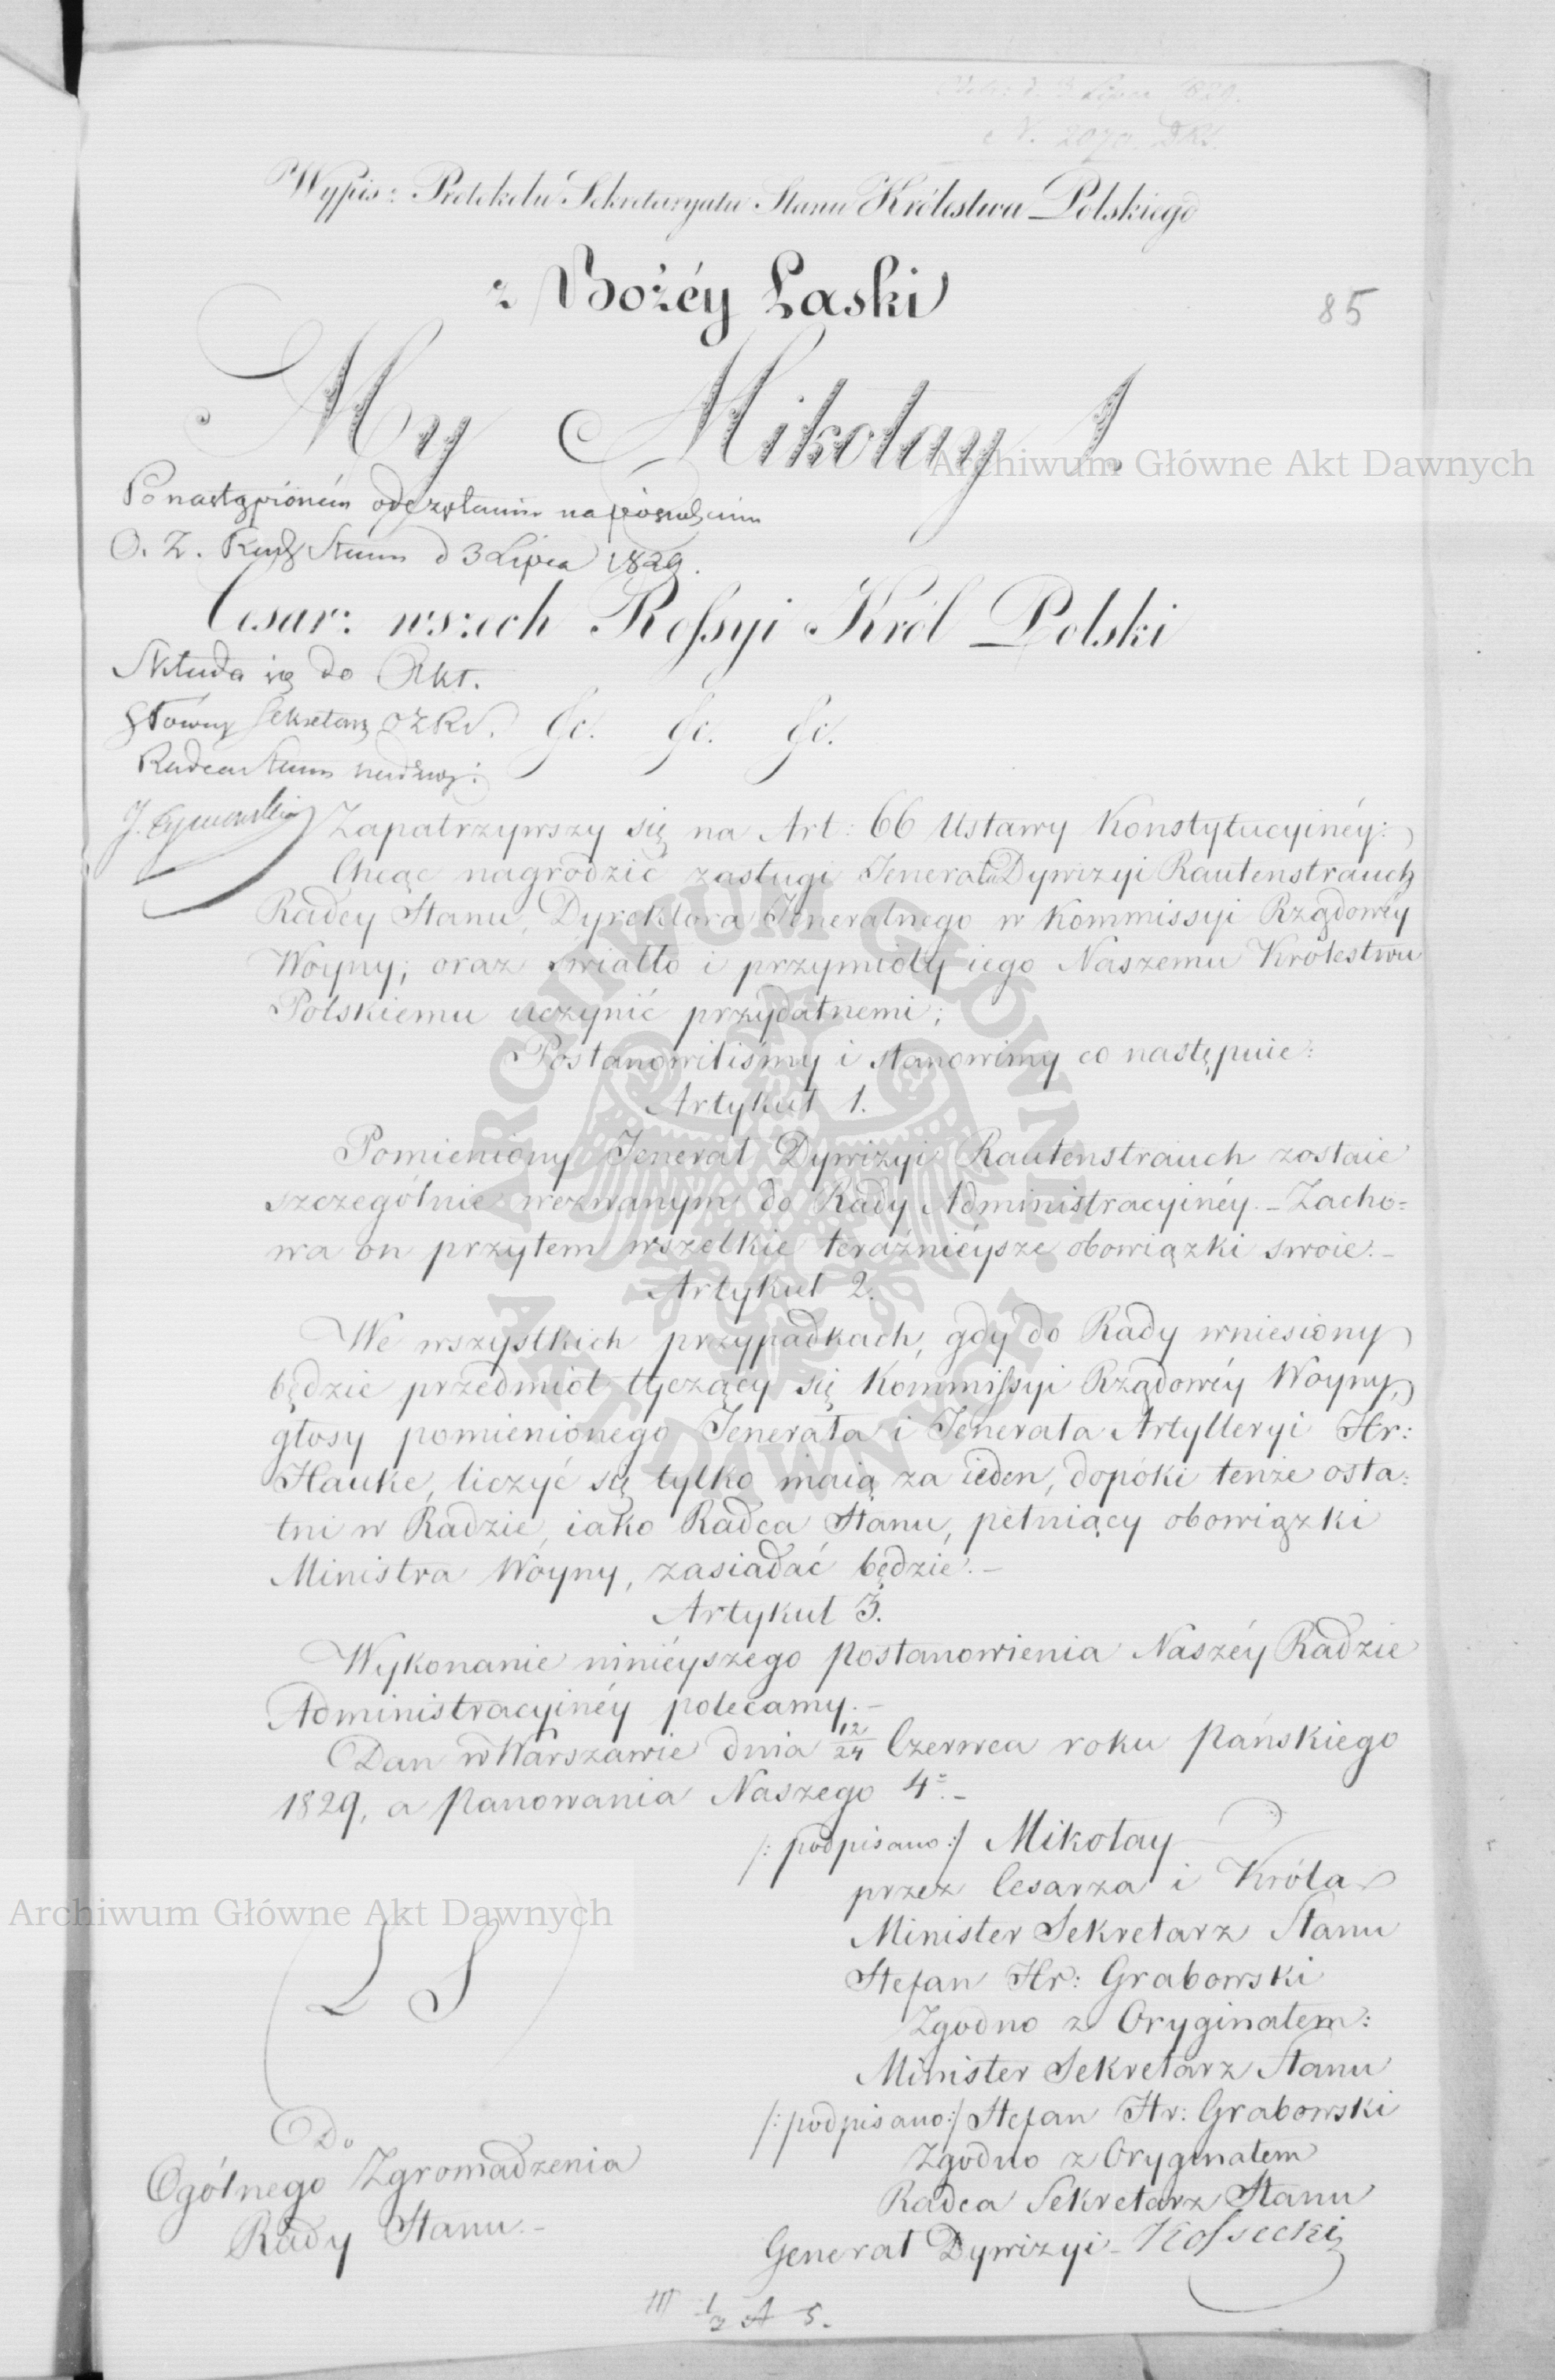 d. 3 Lipca 1829.
N. 2070. DRS.
Wypis z Protokołu Sekretaryatu Stanu Królestwa Polskiego
85
z Bożéy Łaski
My Mikołay I.
Po nastąpioném odczytaniu na posiedzeniu
O. Z. Rady Stanu d 3 Lipca 1829.
Cesarz wszech Rossyi Król Polski
Składa się do Akt.
główny Sekretarz OZRS.
&c. &c. &c.
Radca Stanu nadzwy:
J. Tymowski
Zapatrzywszy się na Art: 66 Ustawy Konstytucyinéy:
Chcąc nagrodzić zasługi Jenerała Dywizyi Rautenstrauch
Radcy Stanu, Dyrektora Jeneralnego w Kommissyi Rządowéy
Woyny; oraz światło i przymioty iego Naszemu Królestwu
Polskiemu uczynić przydatnemi;
Postanowiliśmy i stanowimy co następuie:
Artykuł 1.
Pomieniony Jenerał Dywizyi Rautenstrauch zostaie
szczególnie wezwanym do Rady Administracyinéy. – Zacho=
wa on przytem wszelkie teraźnieysze obowiązki swoie. –
Artykuł 2.
We wszystkich przypadkach, gdy do Rady wniesiony
będzie przedmiot tyczący się Kommissyi Rządowéy Woyny,
głosy pomienionego Jenerała i Jenerała Artylleryi Hr:
Hauke, liczyć się tylko maią za ieden, dopóki tenże osta=
tni w Radzie, iako Radca Stanu, pełniący obowiązki
Ministra Woyny, zasiadać będzie. –
Artykuł 3.
Wykonanie ninieyszego postanowienia Naszéy Radzie
Administracyinéy polecamy. –
Dan w Warszawie dnia 12/24 Czerwca roku Pańskiego
1829, a Panowania Naszego 4= –
/: podpisano :/ Mikołay
przez Cesarza i Króla
Minister Sekretarz Stanu
Stefan Hr: Grabowski
Zgodno z Oryginałem:
Minister Sekretarz Stanu
/: podpisano :/ Stefan Hr: Grabowski
Zgodno z Oryginałem
Radca Sekretarz Stanu
Generał Dywizyi – Kossecki
L S
Do
Ogólnego Zgromadzenia
Rady Stanu. –
III 1/2 A 5.
Archiwum Główne Akt Dawnych
Archiwum Główne Akt Dawnych
ARCHIWUM GŁÓWNE AKT DAWNYCH